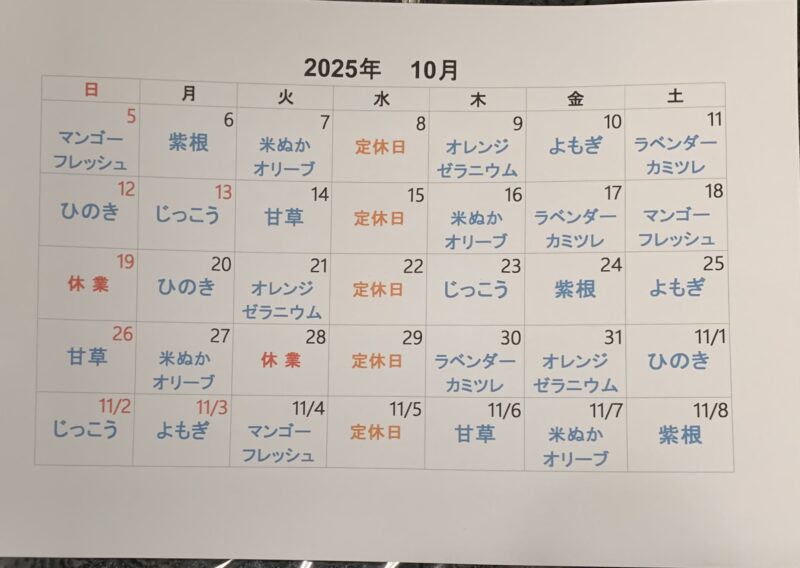 2025年 10月
日 月 火 水 木 金 土
5 6 7 8 9 10 11
マンゴーフレッシュ 紫根 米ぬかオリーブ 定休日 オレンジゼラニウム よもぎ ラベンダーカミツレ
12 13 14 15 16 17 18
ひのき じっこう 甘草 定休日 米ぬかオリーブ ラベンダーカミツレ マンゴーフレッシュ
19 20 21 22 23 24 25
休業 ひのき オレンジゼラニウム 定休日 じっこう 紫根 よもぎ
26 27 28 29 30 31 11/1
甘草 米ぬかオリーブ 休業 定休日 ラベンダーカミツレ オレンジゼラニウム ひのき
11/2 11/3 11/4 11/5 11/6 11/7 11/8
じっこう よもぎ マンゴーフレッシュ 定休日 甘草 米ぬかオリーブ 紫根